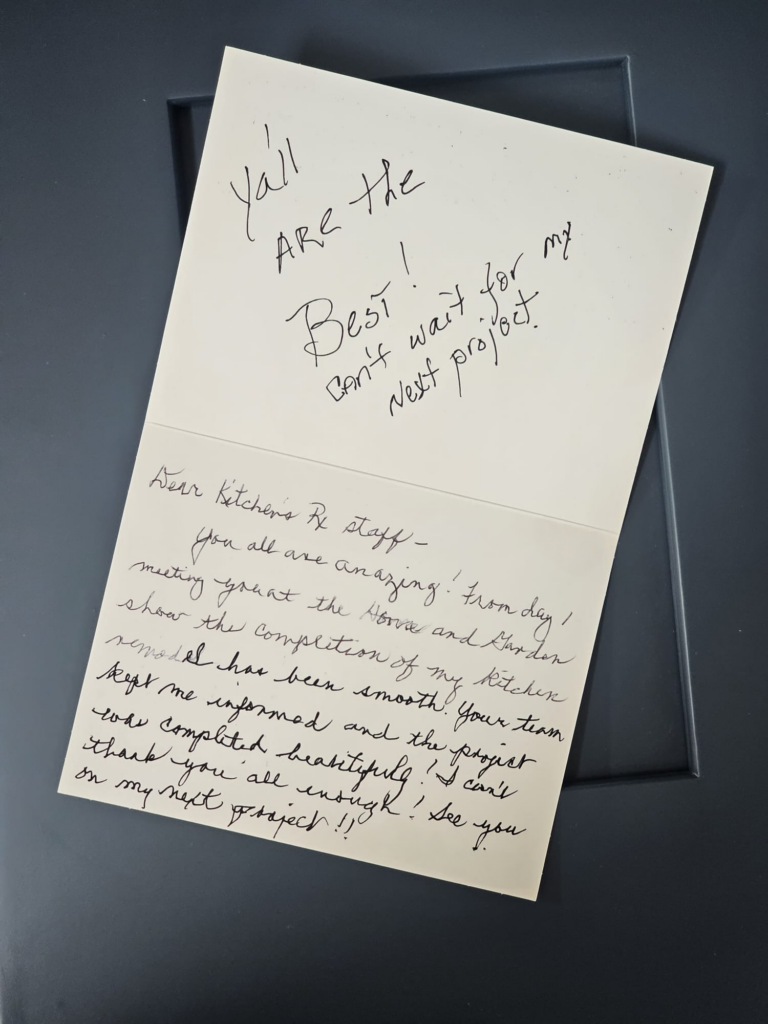 Ya'll
ARE the
Best!
CAn't wait for my
Next project.
Dear Kitchens Rx staff-
You all are amazing! From day 1
meeting you at the Home and Garden
show the completion of my kitchen
remodel has been smooth. Your team
kept me informed and the project
was completed beautifully! I can't
thank you all enough! See you
on my next project!!